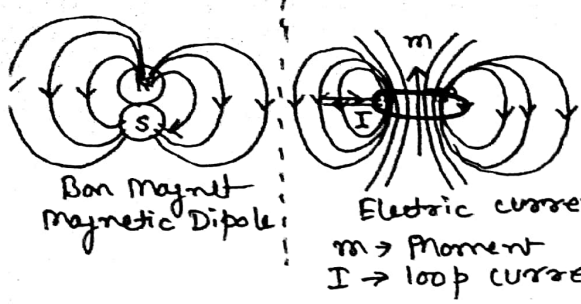 N
S
Bar Magnet
Magnetic Dipole
m
I
Electric curre
m → Moment
I → loop curre